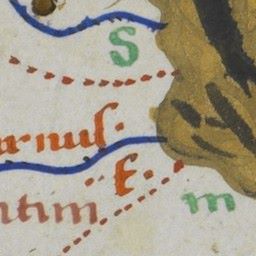 S
rnus.
.. f.
ntim m